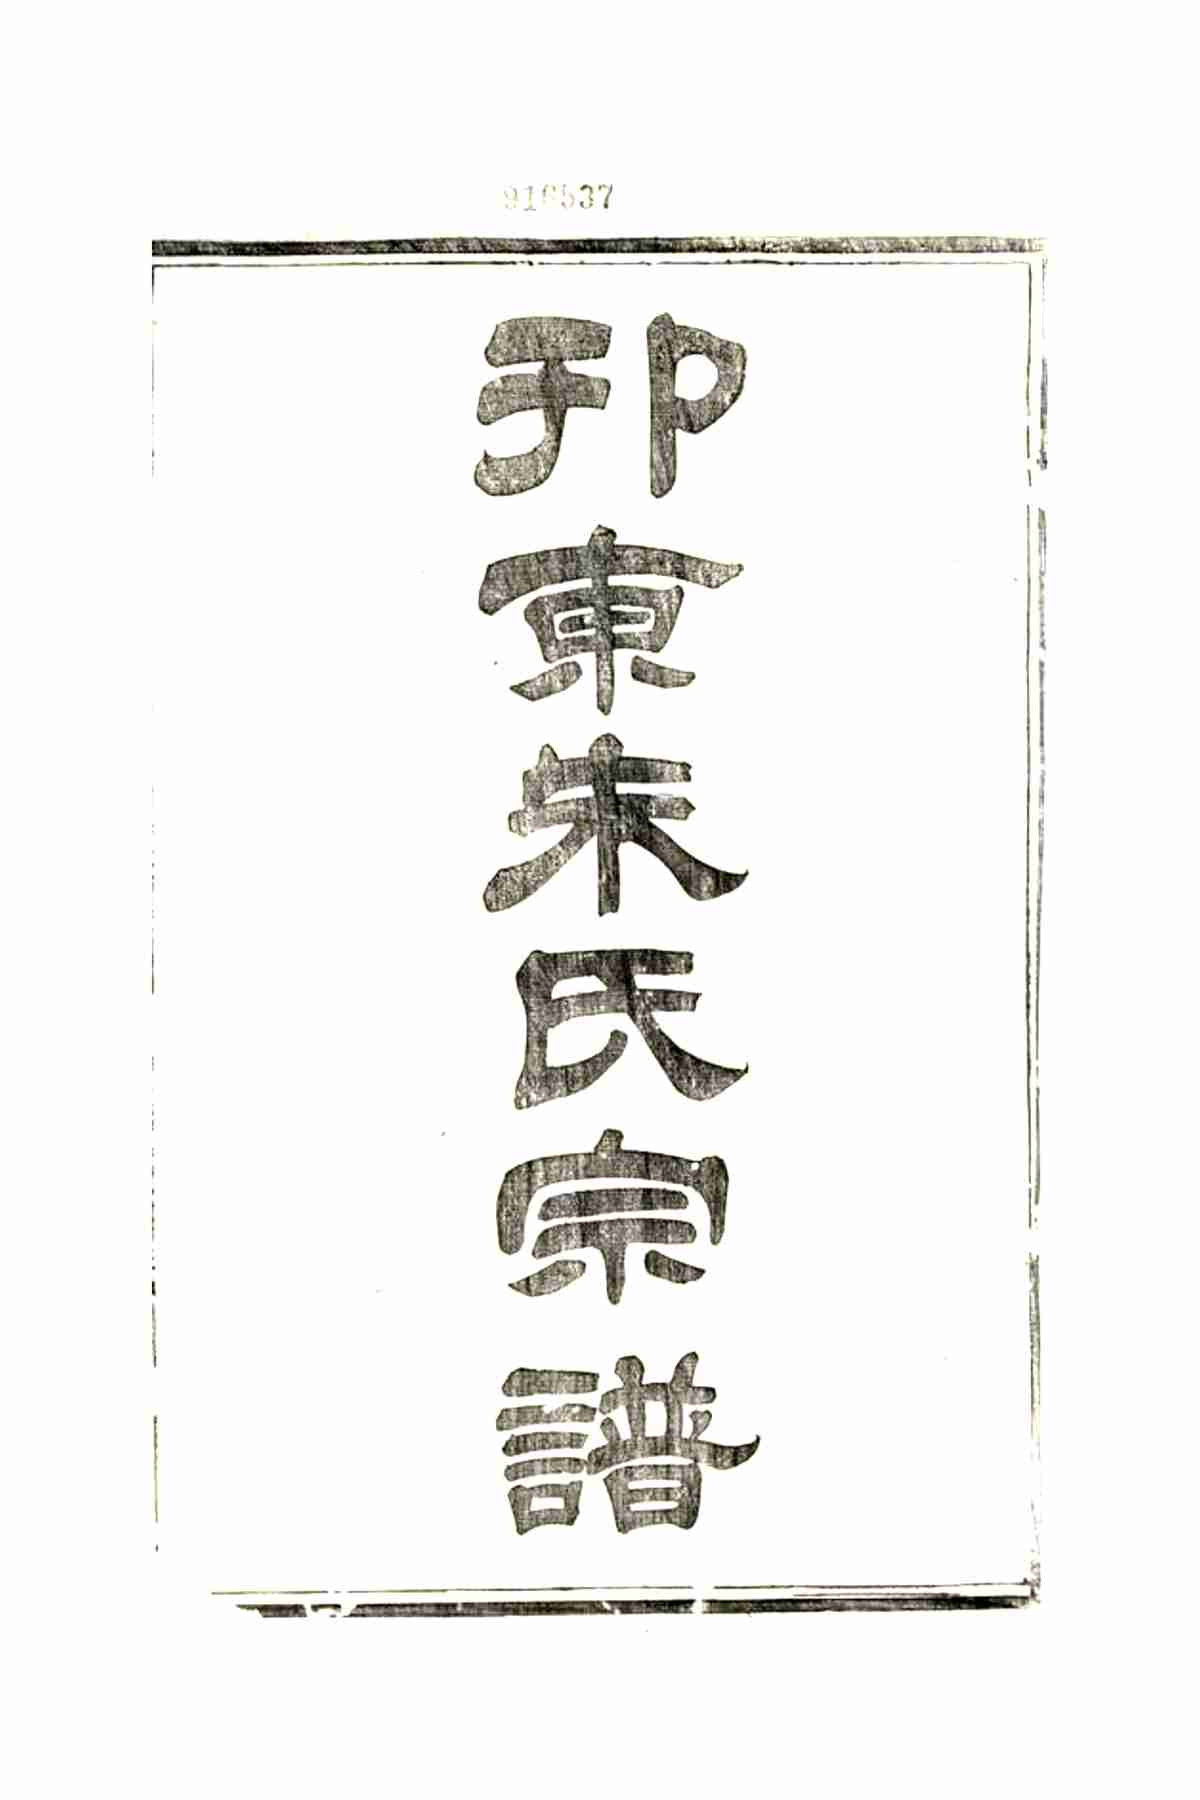 916537
邘東朱氏宗譜